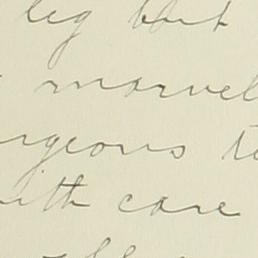 leg but
marvel
rgeons te
ith care